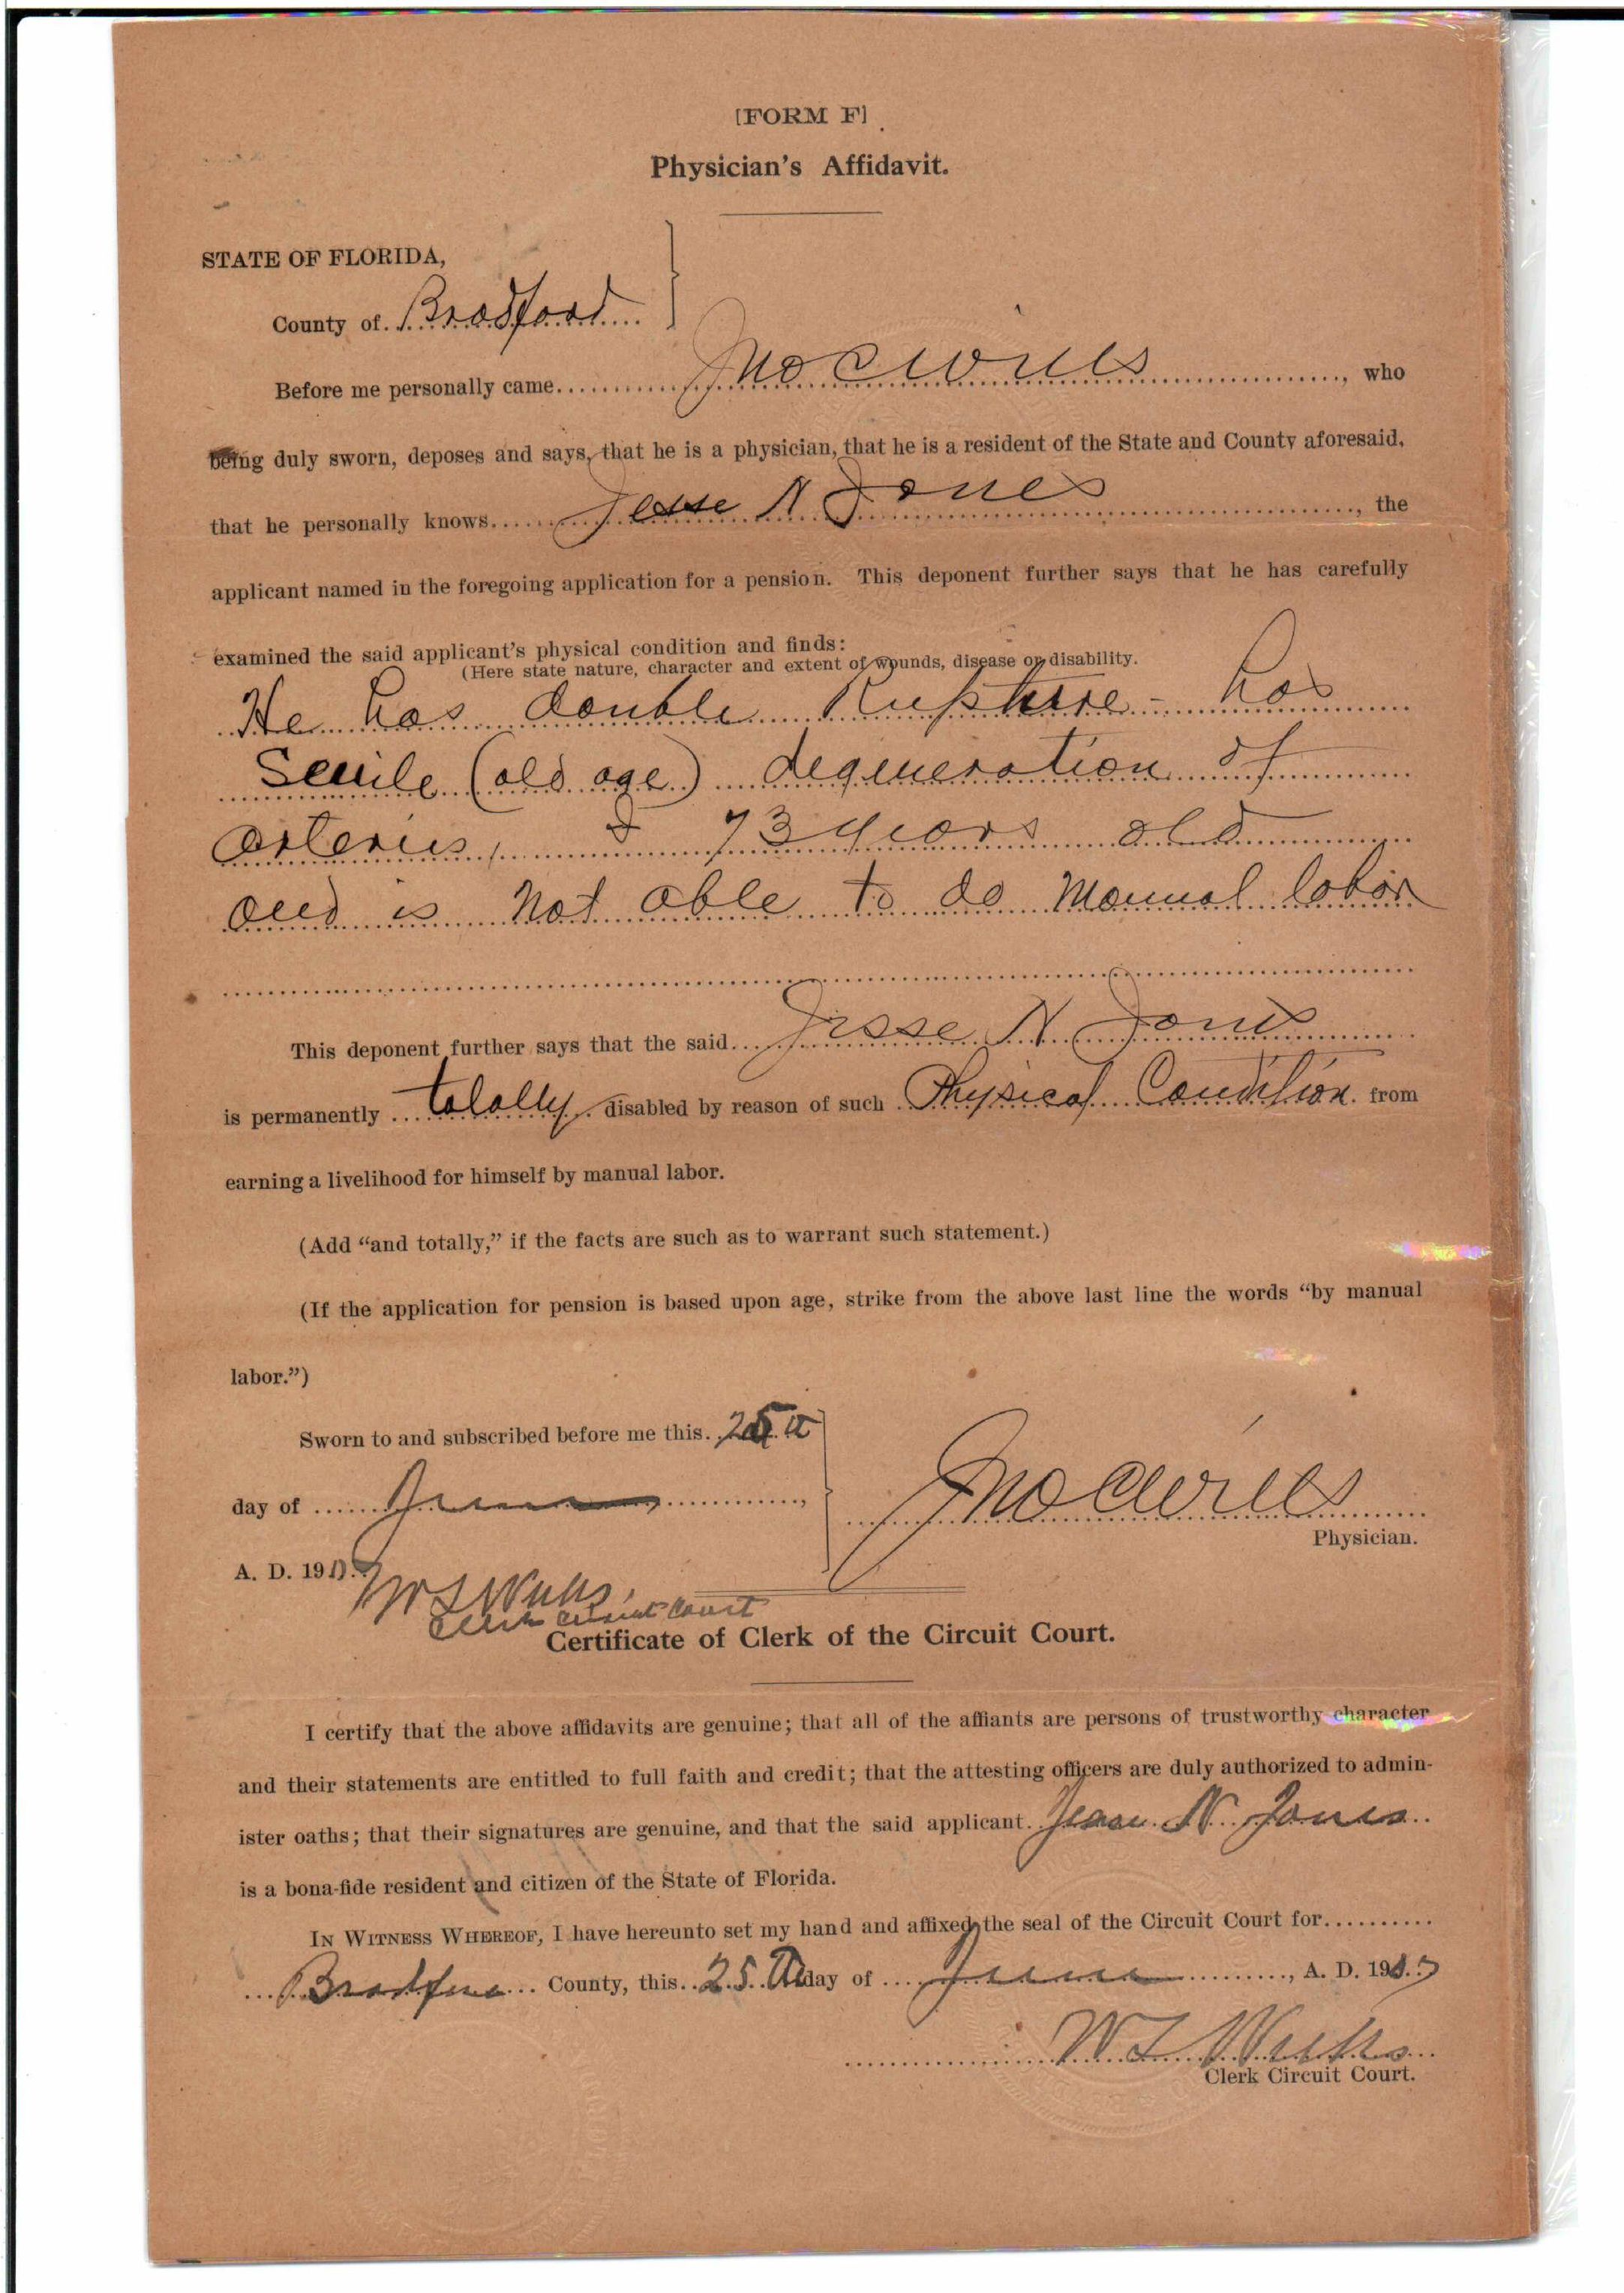 [FORM F]
Physician's Affidavit.
STATE OF FLORIDA,
County of Bradford
Before me personally came Jno C Wills, who
being duly sworn, deposes and says, that he is a physician, that he is a resident of the State and County aforesaid,
that he personally knows Jesse N Jones, the
applicant named in the foregoing application for a pension. This deponent further says that he has carefully
examined the said applicant's physical condition and finds:
(Here state nature, character and extent of wounds, disease or disability.
He has double Rupture - has
Senile (old age) degeneration of
arteries, & 73 years old
and is not able to do manual labor
This deponent further says that the said Jesse N Jones
is permanently totally disabled by reason of such Physical Condition from
earning a livelihood for himself by manual labor.
(Add "and totally," if the facts are such as to warrant such statement.)
(If the application for pension is based upon age, strike from the above last line the words "by manual
labor.")
Sworn to and subscribed before me this 25th
day of June,
Physician.
A. D. 1907
Clerk Circuit Court
Certificate of Clerk of the Circuit Court.
I certify that the above affidavits are genuine; that all of the affiants are persons of trustworthy character
and their statements are entitled to full faith and credit; that the attesting officers are duly authorized to admin-
ister oaths; that their signatures are genuine, and that the said applicant Jesse N. Jones
is a bona-fide resident and citizen of the State of Florida.
IN WITNESS WHEREOF, I have hereunto set my hand and affixed the seal of the Circuit Court for
Bradford County, this 25th day of June, A. D. 1907
Clerk Circuit Court.